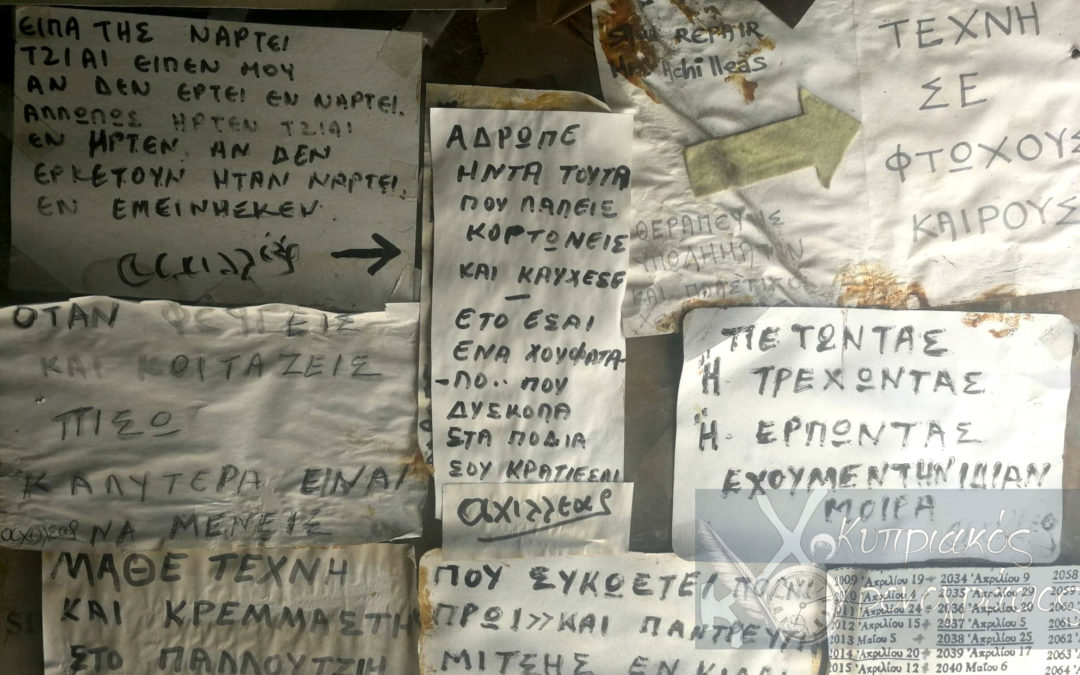 ΕΙΠΑ ΤΗΣ ΝΑΡΤΕΙ
ΤΖΙΑΙ ΕΙΠΕΝ ΜΟΥ
ΑΝ ΔΕΝ ΕΡΤΕΙ ΕΝ ΝΑΡΤΕΙ.
ΑΛΛΩΠΩΣ ΗΡΤΕΝ ΤΖΙΑΙ
ΕΝ ΗΡΤΕΝ. ΑΝ ΔΕΝ
ΕΡΚΕΤΟΥΝ ΗΤΑΝ ΝΑΡΤΕΙ.
ΕΝ ΕΜΕΙΝΗΣΚΕΝ.
ΑΔΡΩΠΕ
ΗΝΤΑ ΤΟΥΤΑ
ΠΟΥ ΠΑΠΕΙΣ
ΚΟΡΤΩΝΕΙΣ
ΚΑΙ ΚΑΥΧΕΣΕ
ΕΤΟ ΕΣΑΙ
ΕΝΑ ΧΟΥΦΑΤΑ
-ΠΟ.. ΠΟΥ
ΔΥΣΚΟΠΑ
ΣΤΑ ΠΟΔΙΑ
ΣΟΥ ΚΡΑΤΙΕΣΑΙ
αχιλλεας
REPAIR
Achilleas
ΤΕΧΝΗ
ΣΕ
ΦΤΩΧΟΥΣ
ΚΑΙΡΟΥΣ
ΟΤΑΝ ΦΕΥΓΕΙΣ
ΚΑΙ ΚΟΙΤΑΖΕΙΣ
ΠΙΣΩ
ΚΑΛΥΤΕΡΑ ΕΙΝΑΙ
ΝΑ ΜΕΝΕΙΣ
αχιλλεας
ΠΕΤΩΝΤΑΣ
Ή ΤΡΕΧΩΝΤΑΣ
Ή ΕΡΠΩΝΤΑΣ
ΕΧΟΥΜΕΝ ΤΗΝ ΙΔΙΑΝ
ΜΟΙΡΑ
ΜΑΘΕ ΤΕΧΝΗ
ΚΑΙ ΚΡΕΜΜΑΣΤΗ
ΣΤΟ ΠΑΛΛΟΥΤΖΙΗ
ΠΟΥ ΣΥΚΩΕΤΕΙ
ΠΡΩΙ>> ΚΑΙ
ΜΙΤΣΗΣ ΕΝ
Κυπριακός
2009 Ἀπριλίου 19 2034 Ἀπριλίου 9 2058
Ἀπριλίου 4 2035 Ἀπριλίου 29 2059
Ἀπριλίου 24 2036 Ἀπριλίου 20
2012 Ἀπριλίου 15 2037 Ἀπριλίου 5
2013 Μαίου 5 2038 Ἀπριλίου 25
2014 Ἀπριλίου 20 2039 Ἀπριλίου 17 2063
2015 Ἀπριλίου 12 2040 Μαΐου 6 2064